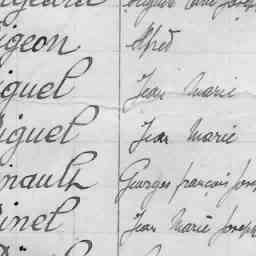 igeon Alfred
iguel Jean Marie
iguel Jean Marie
nault Georges françois Jose
inel Jean Marie Joseph